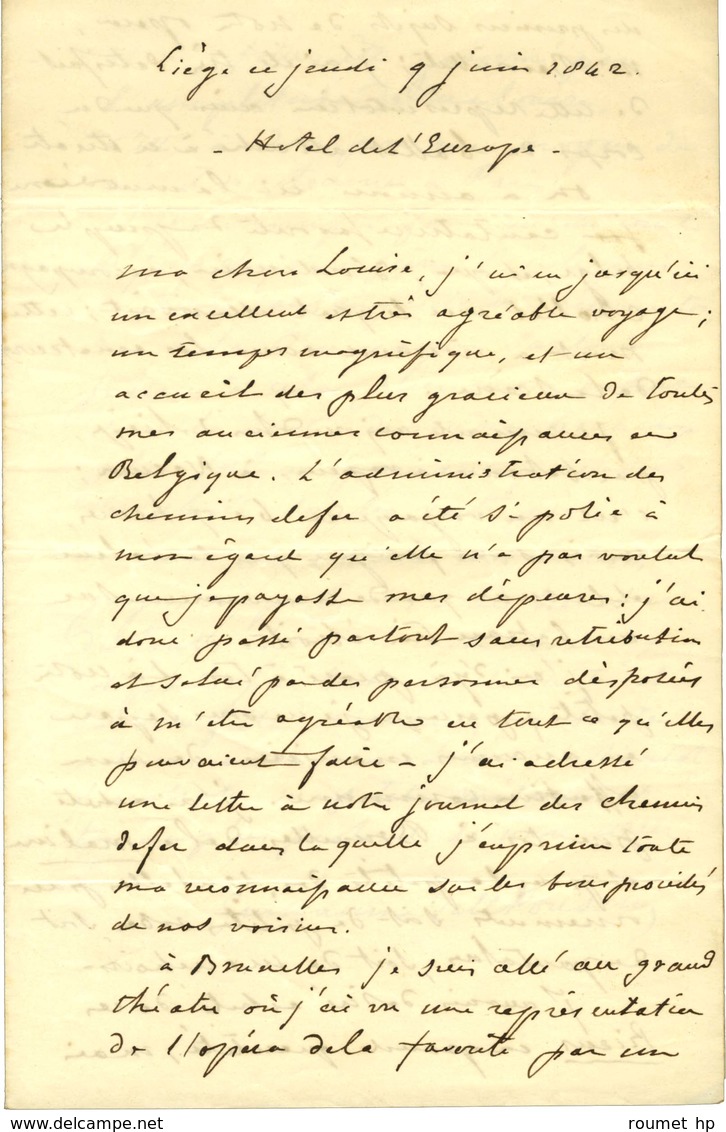 Liège ce jeudi 9 juin 1842.
- Hotel de l'Europe -
ma chere Louise, j'ai eu jusqu'ici
un excellent et très agréable voyage;
un temps magnifique, et un
accueil des plus gracieux de toutes
mes anciennes connaissances en
Belgique. L'administration des
chemins de fer a été si polie à
mon égard qu'elle n'a pas voulut
que je payasse mes dépenses: j'ai
donc passé partout sans retribution
et salué par des personnes disposées
à m'etre agréable en tout ce qu'elles
pouvaient faire - j'ai adressé
une lettre à notre journal des chemins
de fer dans laquelle j'exprime toute
ma reconnaissance sur les bons procédés
de nos voisins.
à Bruxelles je suis allé au grand
théatre où j'ai vu une représentation
de l'opéra de la favorite par un
© roumet hp